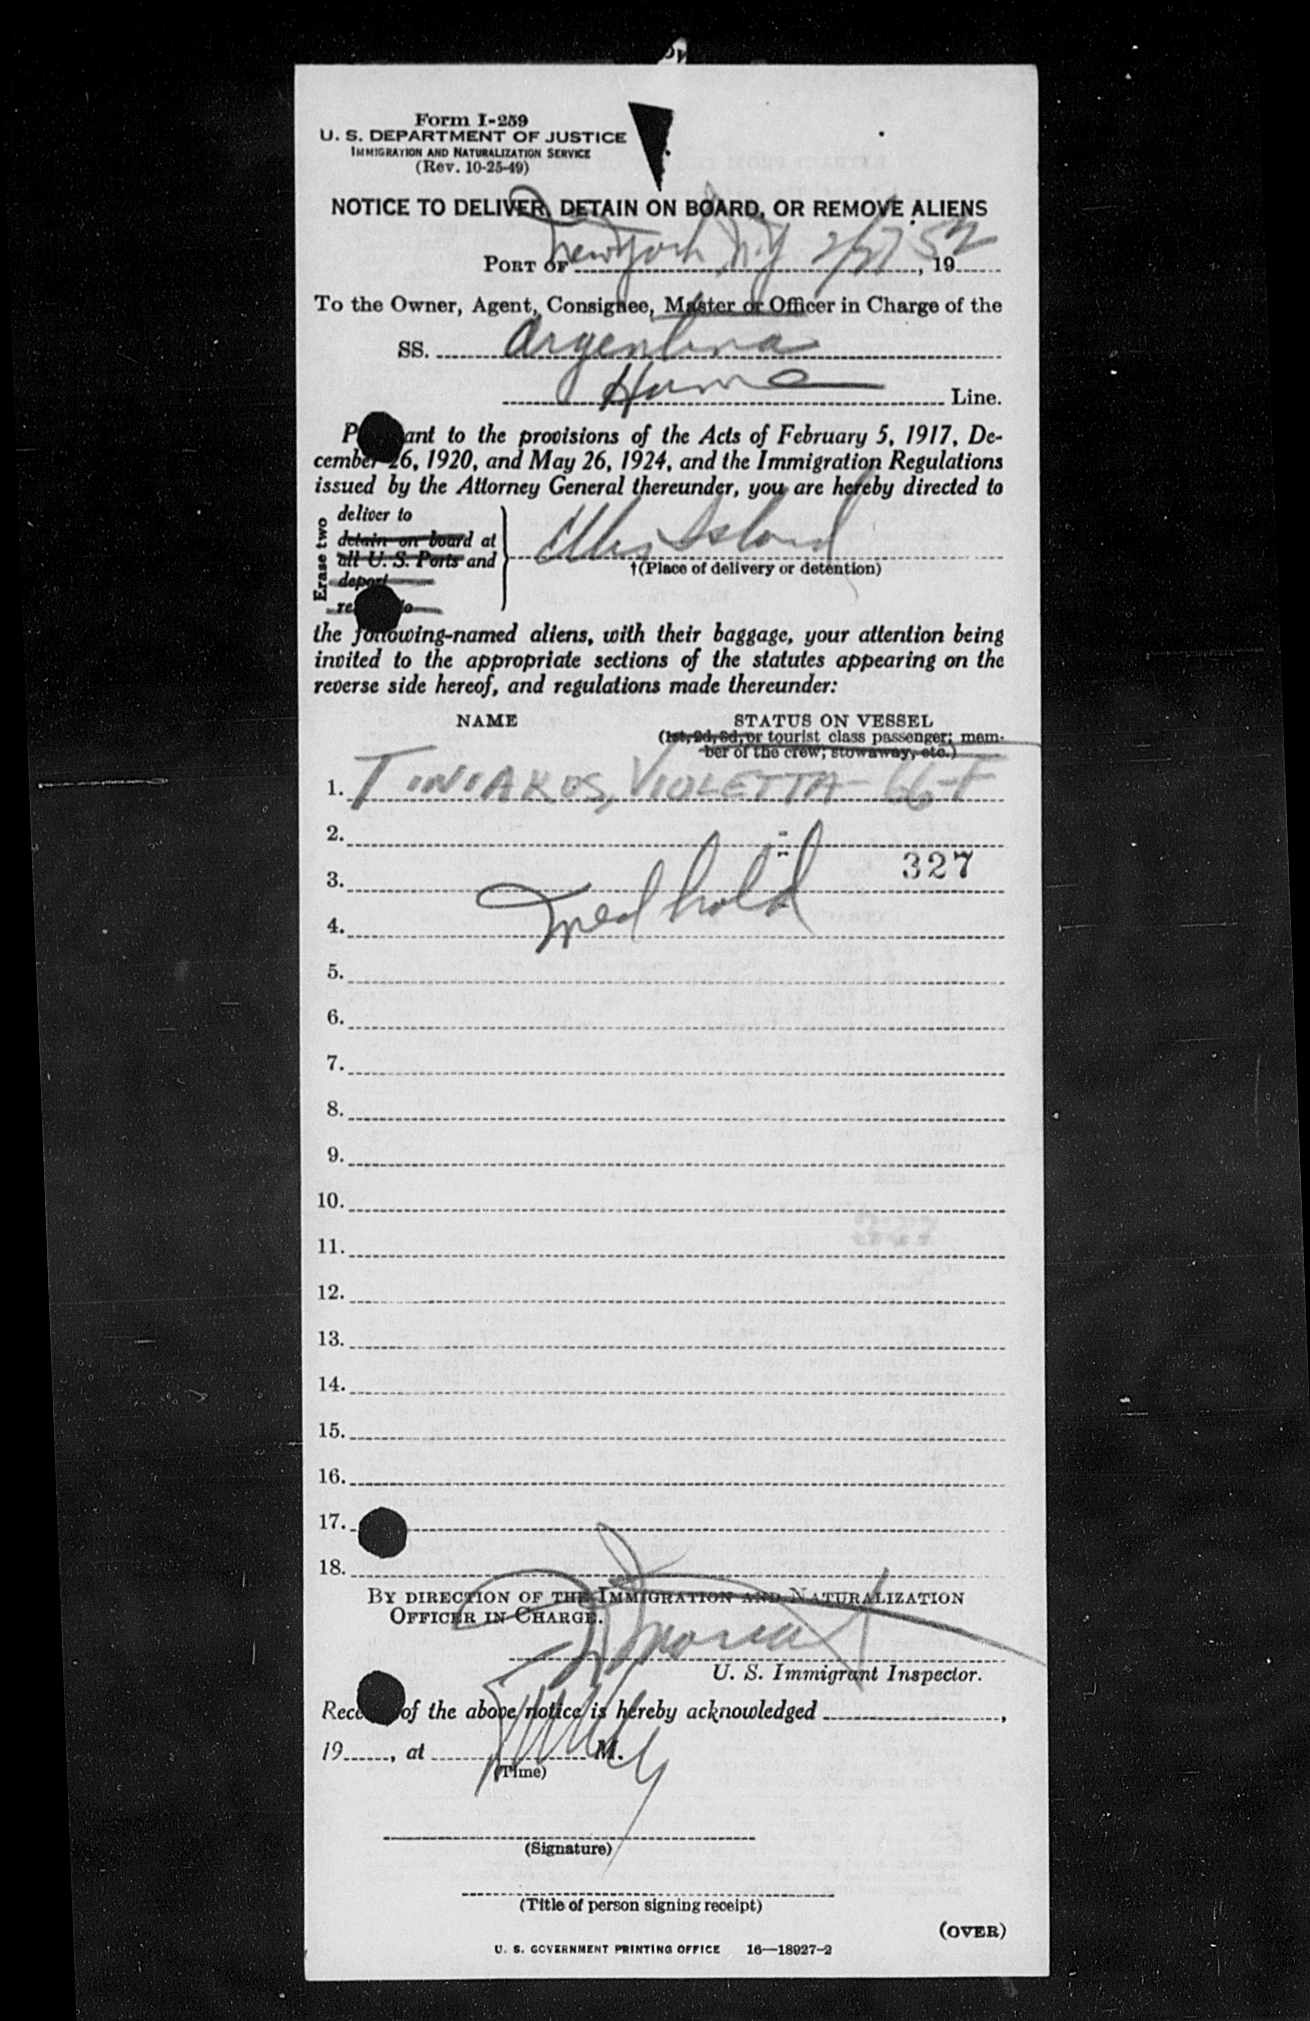 Form I-259
U. S. DEPARTMENT OF JUSTICE
IMMIGRATION AND NATURALIZATION SERVICE
(Rev. 10-25-49)
NOTICE TO DELIVER, DETAIN ON BOARD, OR REMOVE ALIENS
PORT OF New York N.Y 2/27, 1952
To the Owner, Agent, Consignee, Master or Officer in Charge of the
SS. Argentina
Home Line.
P ant to the provisions of the Acts of February 5, 1917, De-
cember 26, 1920, and May 26, 1924, and the Immigration Regulations
issued by the Attorney General thereunder, you are hereby directed to
Erase two
deliver to
detain on board at
all U. S. Ports and
deport
re o
Ellis Island
†(Place of delivery or detention)
the following-named aliens, with their baggage, your attention being
invited to the appropriate sections of the statutes appearing on the
reverse side hereof, and regulations made thereunder:
NAME STATUS ON VESSEL
(1st, 2d, 3d, or tourist class passenger; mem-
ber of the crew; stowaway, etc.)
1. TINIAKOS, VIOLETTA - 66-F
2.
3. 327
4. Med hold
5.
6.
7.
8.
9.
10.
11.
12.
13.
14.
15.
16.
17.
18.
BY DIRECTION OF THE IMMIGRATION AND NATURALIZATION
OFFICER IN CHARGE.
U. S. Immigrant Inspector.
Rece of the above notice is hereby acknowledged ,
19 , at M.
(Time)
(Signature)
(Title of person signing receipt)
(OVER)
U. S. GOVERNMENT PRINTING OFFICE 16—18927-2